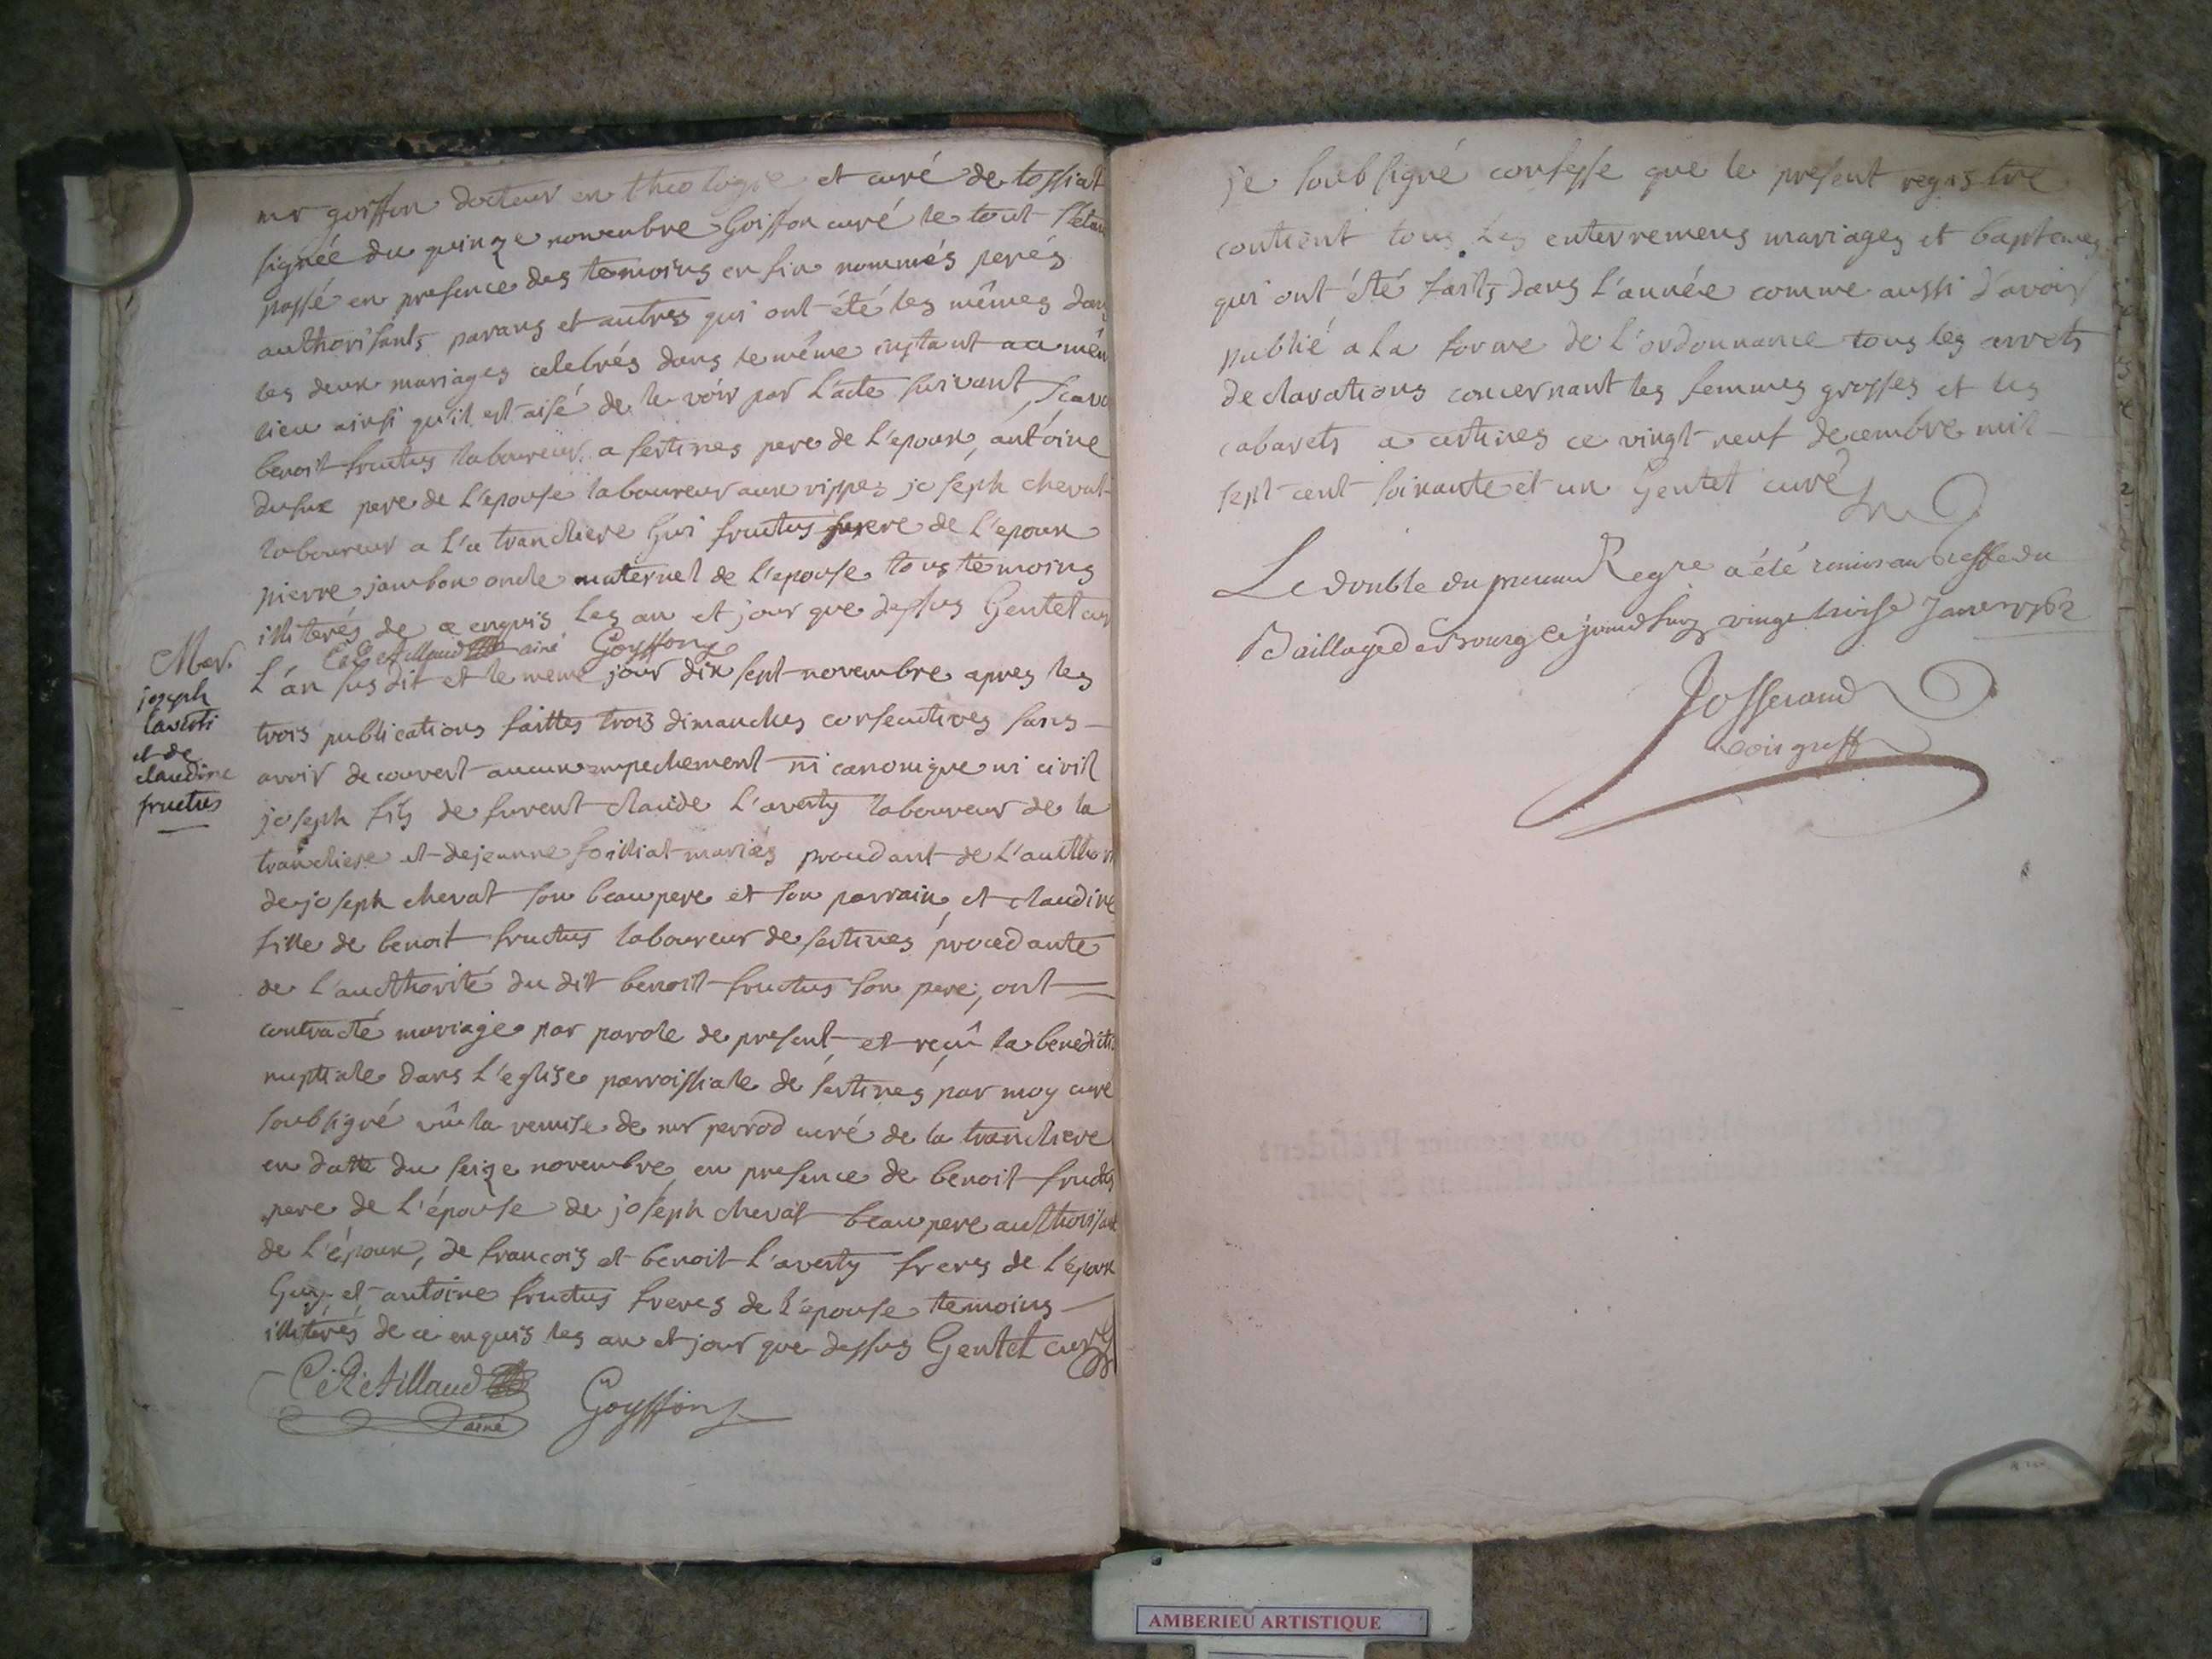 mr goiffon docteur en theologie et curé de tossiat
signée du quinze novembre Goiffon curé le tout s'etan
passé en presence des temoins en fin nommés perés
authorisants parans et autres qui ont été les mêmes dans
les deux mariages celebrés dans le même instant au mêm
lieu ainsi qu'il est aisé de le voir par l'acte suivant, scavo
benoit fructus laboureur a sertines pere de l'epoux, antoine
dufux pere de l'epouse laboureur aux rippes joseph chevat
laboureur a l'a tranchere Gui fructus frere de l'epoux
pierre jambon oncle maternel de l'epouse tous temoins
illiterés de ce enquis les an et jour que dessus Gentet cur
C E Retillaud ainé Goyffon
Mar.
joseph
laverti
et de
claudine
fructus
L'an sus dit et le meme jour dix sept novembre apres les
trois publications faittes trois dimanches consecutives sans
avoir decouvert aucun empechement ni canonique ni civil
joseph fils de furent claude l'averty laboureur de la
tranchere et dejeanne foilliat mariés procedant de l'authori
de joseph chevat son beaupere et son parrain, et claudine
fille de benoit fructus laboureur de sertines procedante
de l'aucthorité du dit benoit fructus son pere, ont
contracté mariage par parole de present et reçû la benedicti
nuptiale dans l'eglise parroissiale de sertines par moy curé
soubsigné vû la remise de mr perrod curé de la tranchere
en datte du seize novembre, en presence de benoit fructus
pere de l'épouse de joseph chevat beaupere authorisant
de l'époux, de francois et benoit l'averty freres de l'époux
Guy et antoine fructus freres de l'epouse temoins
illiterés de ce enquis les an et jour que dessus Gentet curé
C E Retillaud
ainé
Goyffon
je soubsigné confesse que le present registre
contient tous les enterremens mariages et baptemes
qui ont été faits dans l'année comme aussi d'avoir
publié a la forme de l'ordonnance tous les arrets
declarations concernant les femmes grosses et les
cabarets a certines ce vingt neuf decembre mil
sept cent soixante et un Gentet curé
Le double du present Regre a été remis au Greffe du
Baillage de Bourg ce jourd'huy vingt troise Janvier 1762
Josserand
AMBERIEU ARTISTIQUE